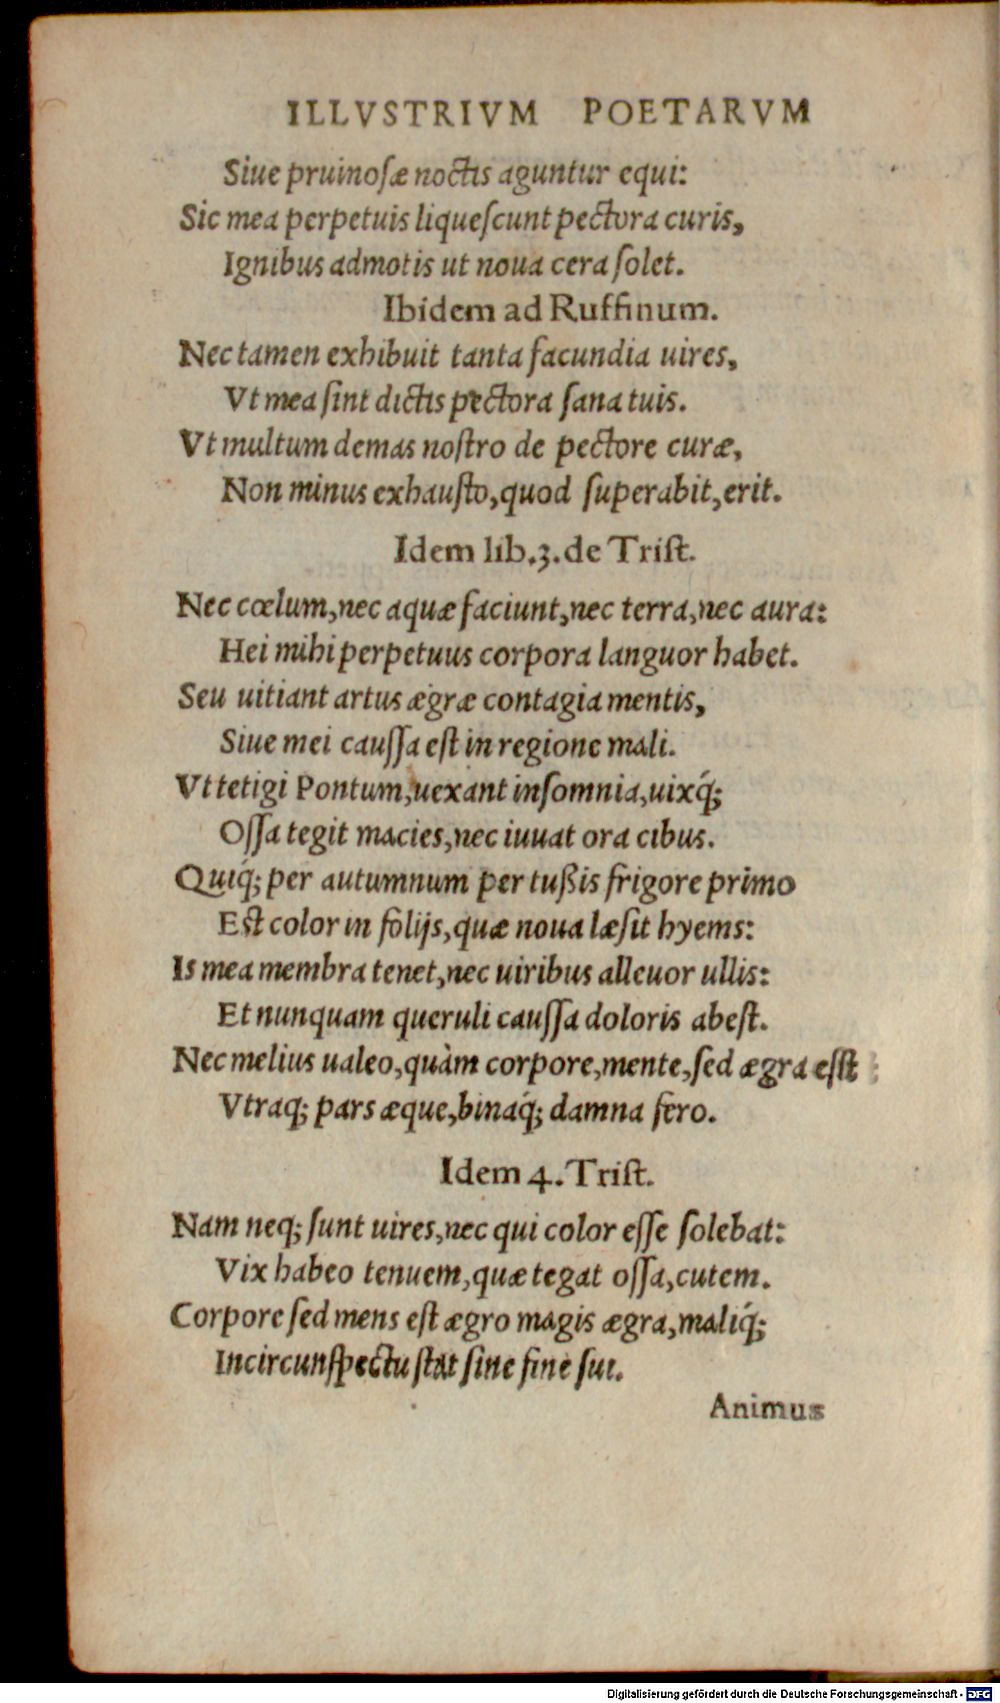 ILLVSTRIVM POETARVM
Siue pruinoſæ noctis aguntur equi:
Sic mea perpetuis liqueſcunt pectora curis,
Ignibus admotis ut noua cera ſolet.
Ibidem ad Ruffinum.
Nec tamen exhibuit tanta facundia uires,
Vt mea ſint dictis pectora ſana tuis.
Vt multum demas noſtro de pectore curæ,
Non minus exhauſto, quod ſuperabit, erit.
Idem lib.3. de Triſt.
Nec cœlum, nec aquæ faciunt, nec terra, nec auræ:
Hei mihi perpetuus corpora languor habet.
Seu uitiant artus ægræ contagia mentis,
Siue mei cauſſa eſt in regione mali.
Vt tetigi Pontum, uexant inſomnia, uixq́;
Oſſa tegit macies, nec iuuat ora cibus.
Quiq́; per autumnum per tußis frigore primo
Eſt color in folijs, quæ noua læſit hyems:
Is mea membra tenet, nec uiribus alleuor ullis:
Et nunquam queruli cauſſa doloris abeſt.
Nec melius ualeo, quàm corpore, mente, ſed ægra eſſt
Vtraq; pars æque, binaq́; damna fero.
Idem 4. Triſt.
Nam neq; ſunt uires, nec qui color eſſe ſolebat:
Vix habeo tenuem, quæ tegat oſſa, cutem.
Corpore ſed mens eſt ægro magis ægra, maliq́;
In circunſpectu ſtat ſine fine ſui.
Animus
Digitalisierung gefördert durch die Deutsche Forschungsgemeinschaft - DFG